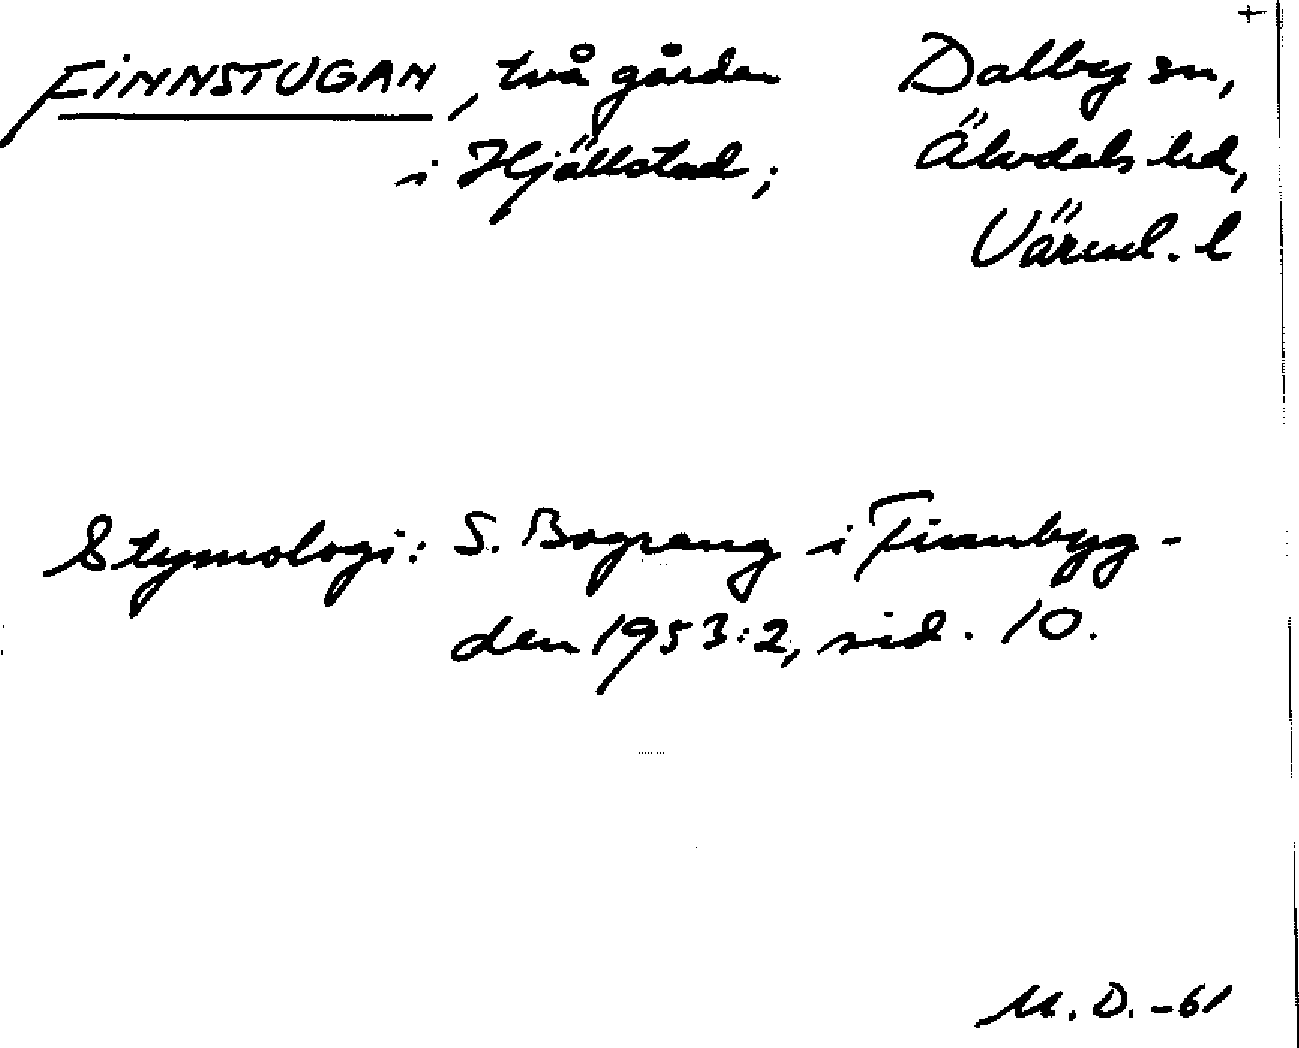 +
FINNSTUGAN, två gårdar
i Hjällstad;
Dalby sn,
Älvdals hd,
Värml. l
Etymologi: S. Bograng i Finnbyg-
den 1953:2, sid. 10.
M. D. -61